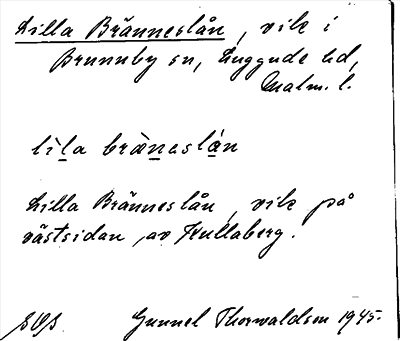 Lilla Bränneslån, vik i
Brunnby sn, Luggude hd,
Malm. l.
lìl̲a brän̲aslá̲n
Lilla Bränneslån, vik på
västsidan av Kullaberg.
Gunnel Thorwaldson 1945.